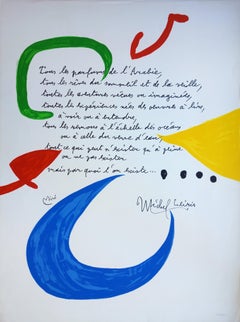 Tous les parfums de l'Arabie,
tous les rêves du sommeil et de la veille,
toutes les aventures vécues ou imaginées,
toutes les expériences nées des œuvres à lire,
à voir ou à entendre,
tous les remous à l'échelle des océans
ou à celle du verre d'eau,
tout ce qui peut n'exister qu'à peine
ou ne pas exister
mais par quoi l'on existe...
Michel Leiris